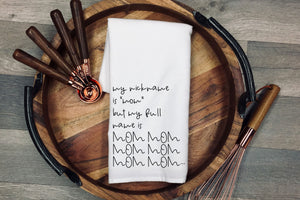 my nickname
is "mom"
but my full
name is
MOM MOM
MOM MOM
MOM MOM...